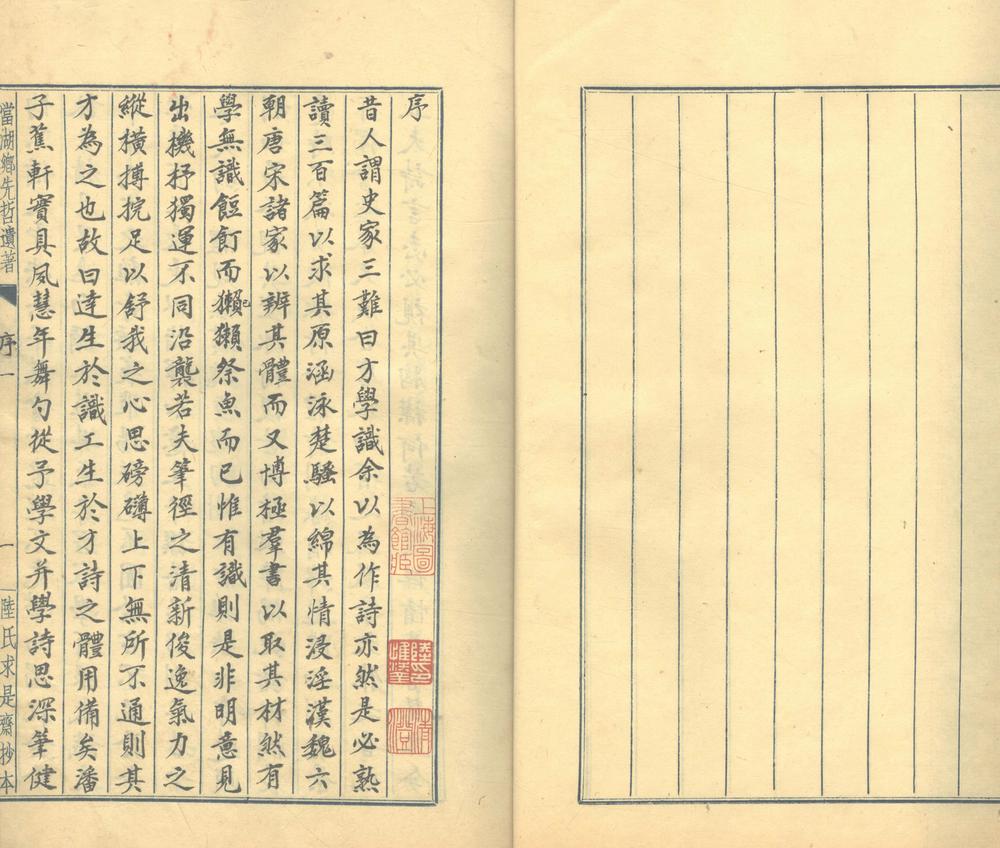 序
昔人謂史家三難曰才學識余以為作詩亦然是必熟
讀三百篇以求其原涵泳楚騷以綿其情浸淫漢魏六
朝唐宋諸家以辨其體而又博極羣書以取其材然有
學無識餖飣而獺獺祭魚而已惟有識則是非明意見
出機抒獨運不同沿襲若夫筆徑之清新俊逸氣力之
縱橫摶捖足以舒我之心思磅礴上下無所不通則其
才為之也故曰達生於識工生於才詩之體用備矣潘
子蕉軒實具夙慧年舞勺從予學文并學詩思深筆健
當湖鄉先哲遺著
序一
一
陸氏求是齋抄本
上海圖書館臧
陸惟鎏印
清澄